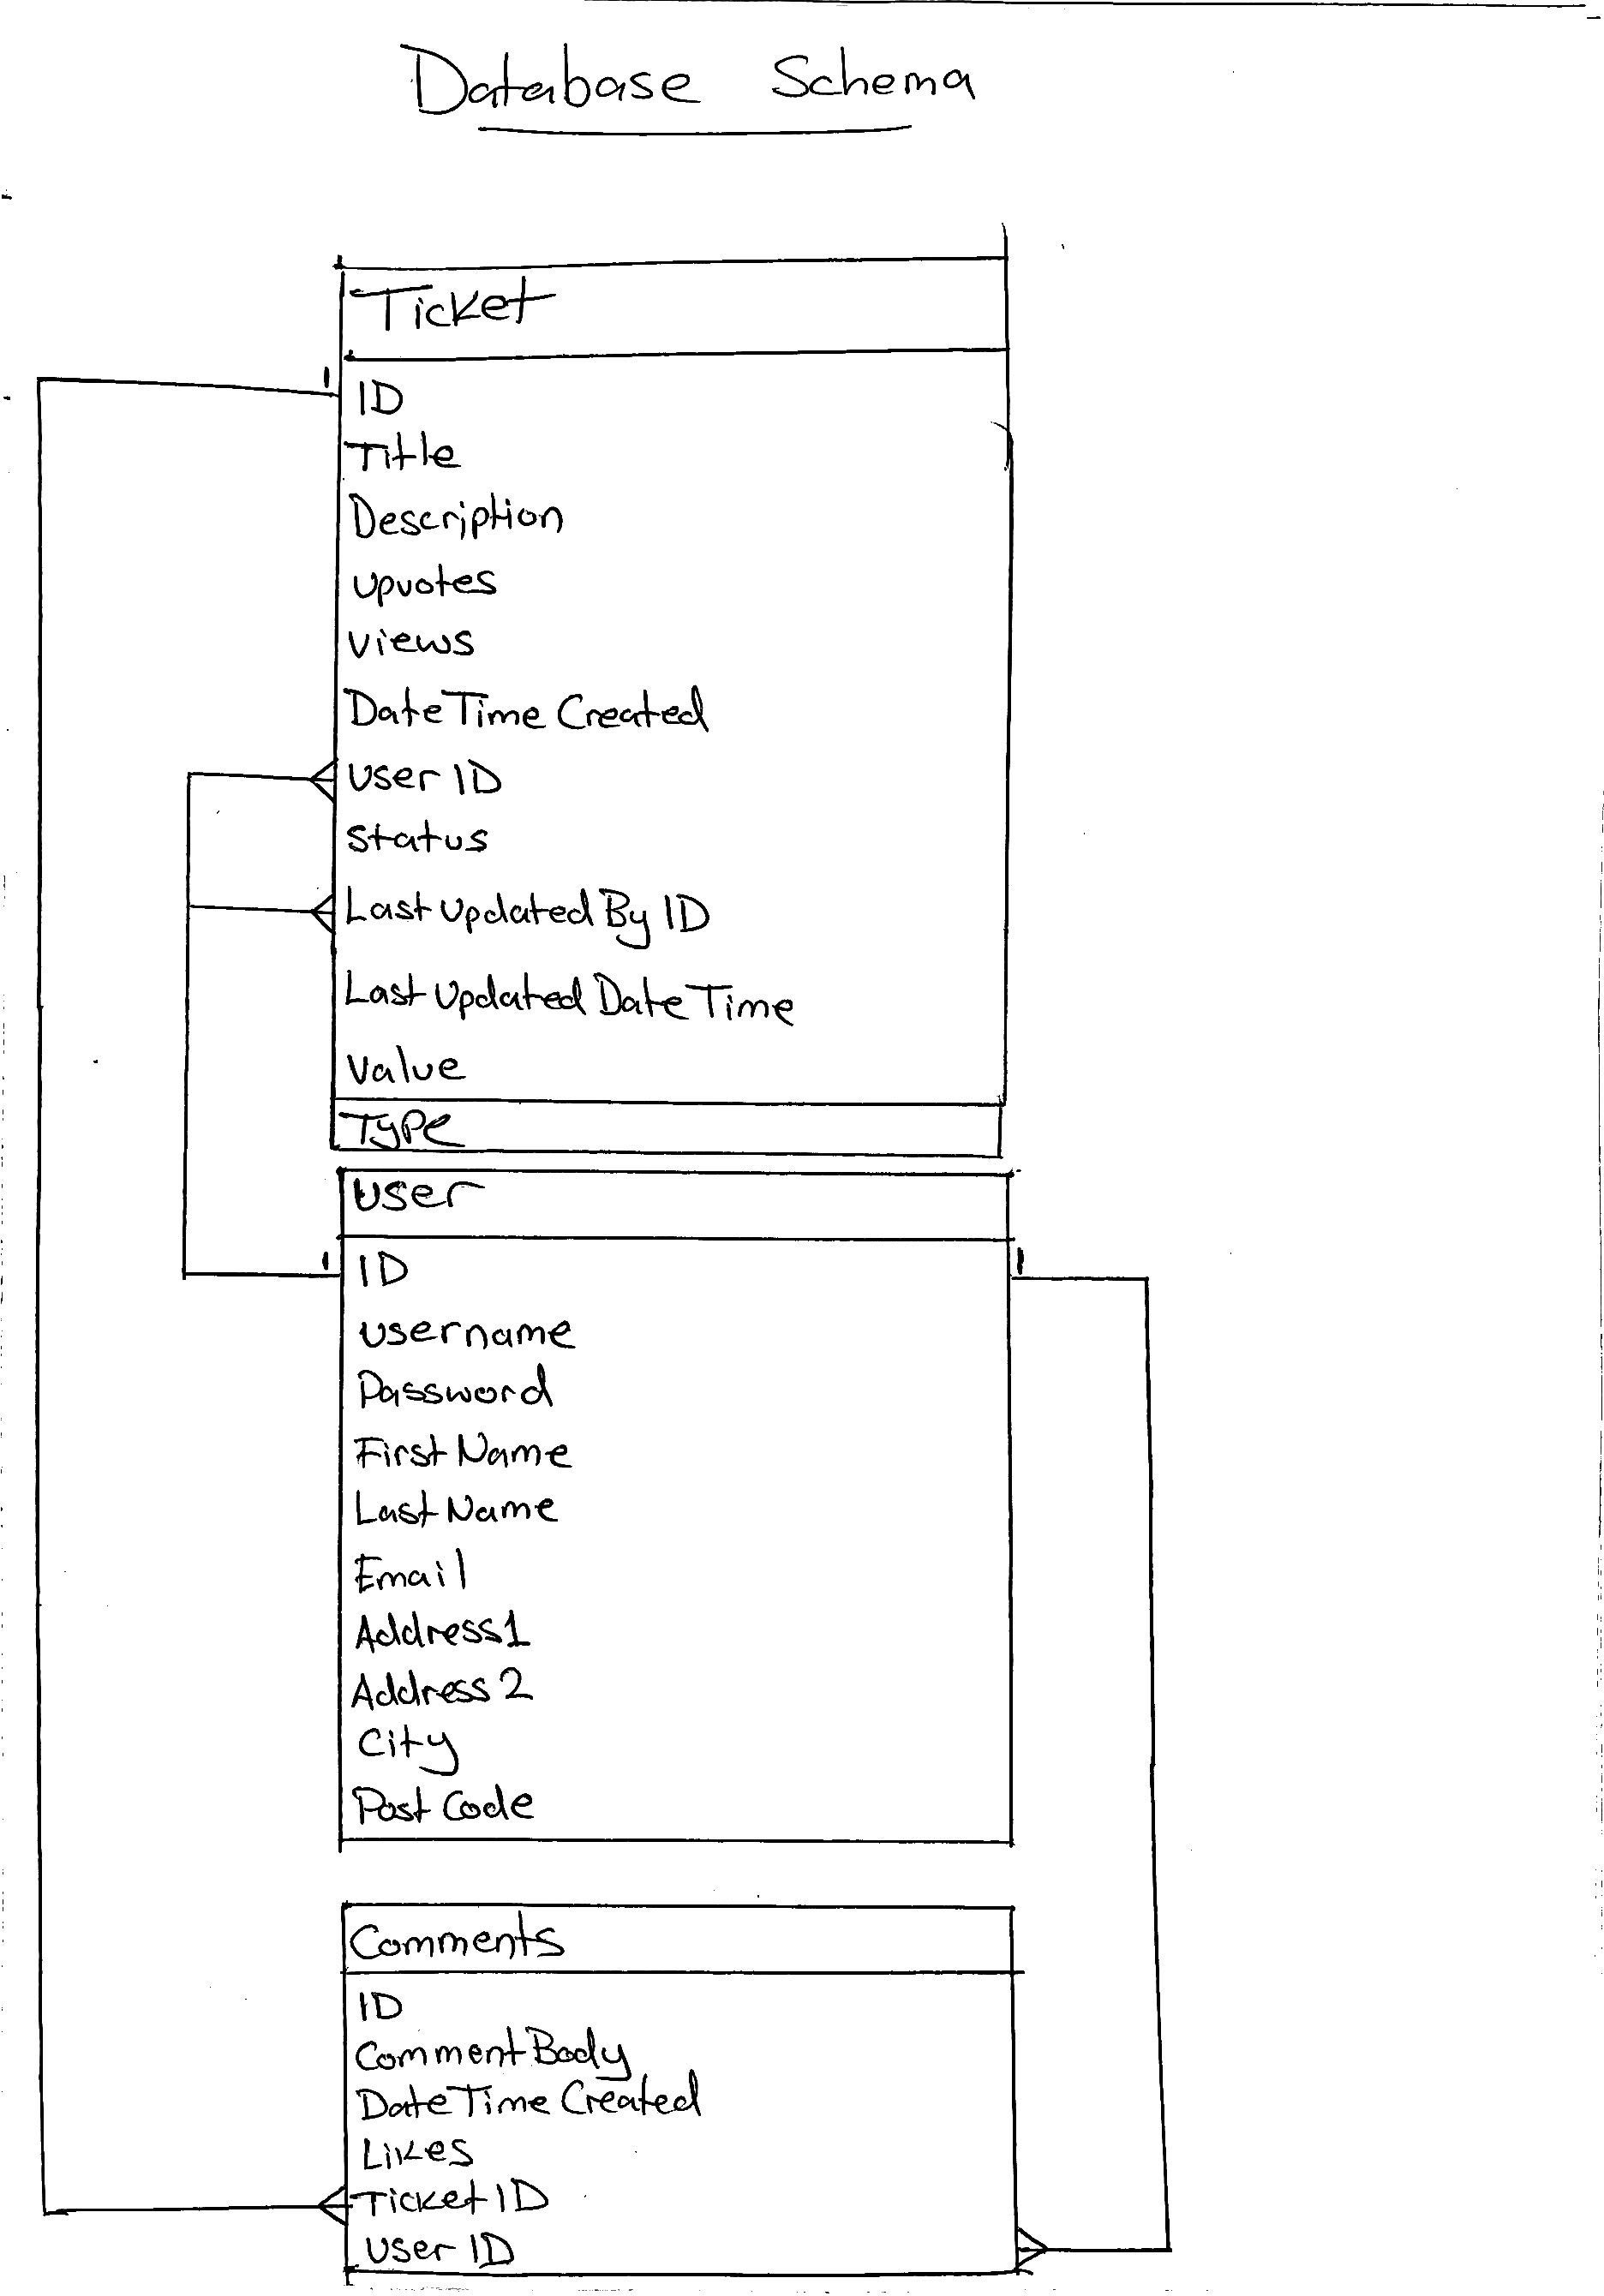 Database Schema
Ticket
1
ID
Title
Description
Upvotes
Views
DateTime Created
User ID
Status
Last Updated By ID
Last Updated Date Time
Value
Type
User
1
ID
1
Username
Password
First Name
Last Name
Email
Address1
Address 2
City
Post Code
Comments
ID
Comment Body
Date Time Created
Likes
Ticket ID
User ID